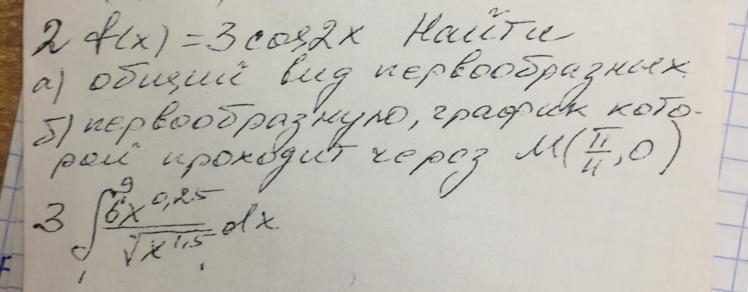 2 f(x) = 3cos2x Найти
а) общий вид первообразных
б) первообразную, график кото-
рой проходит через M(π/4, 0)
3 ∫₁⁹ 6x^0,25/√x^1,5 dx